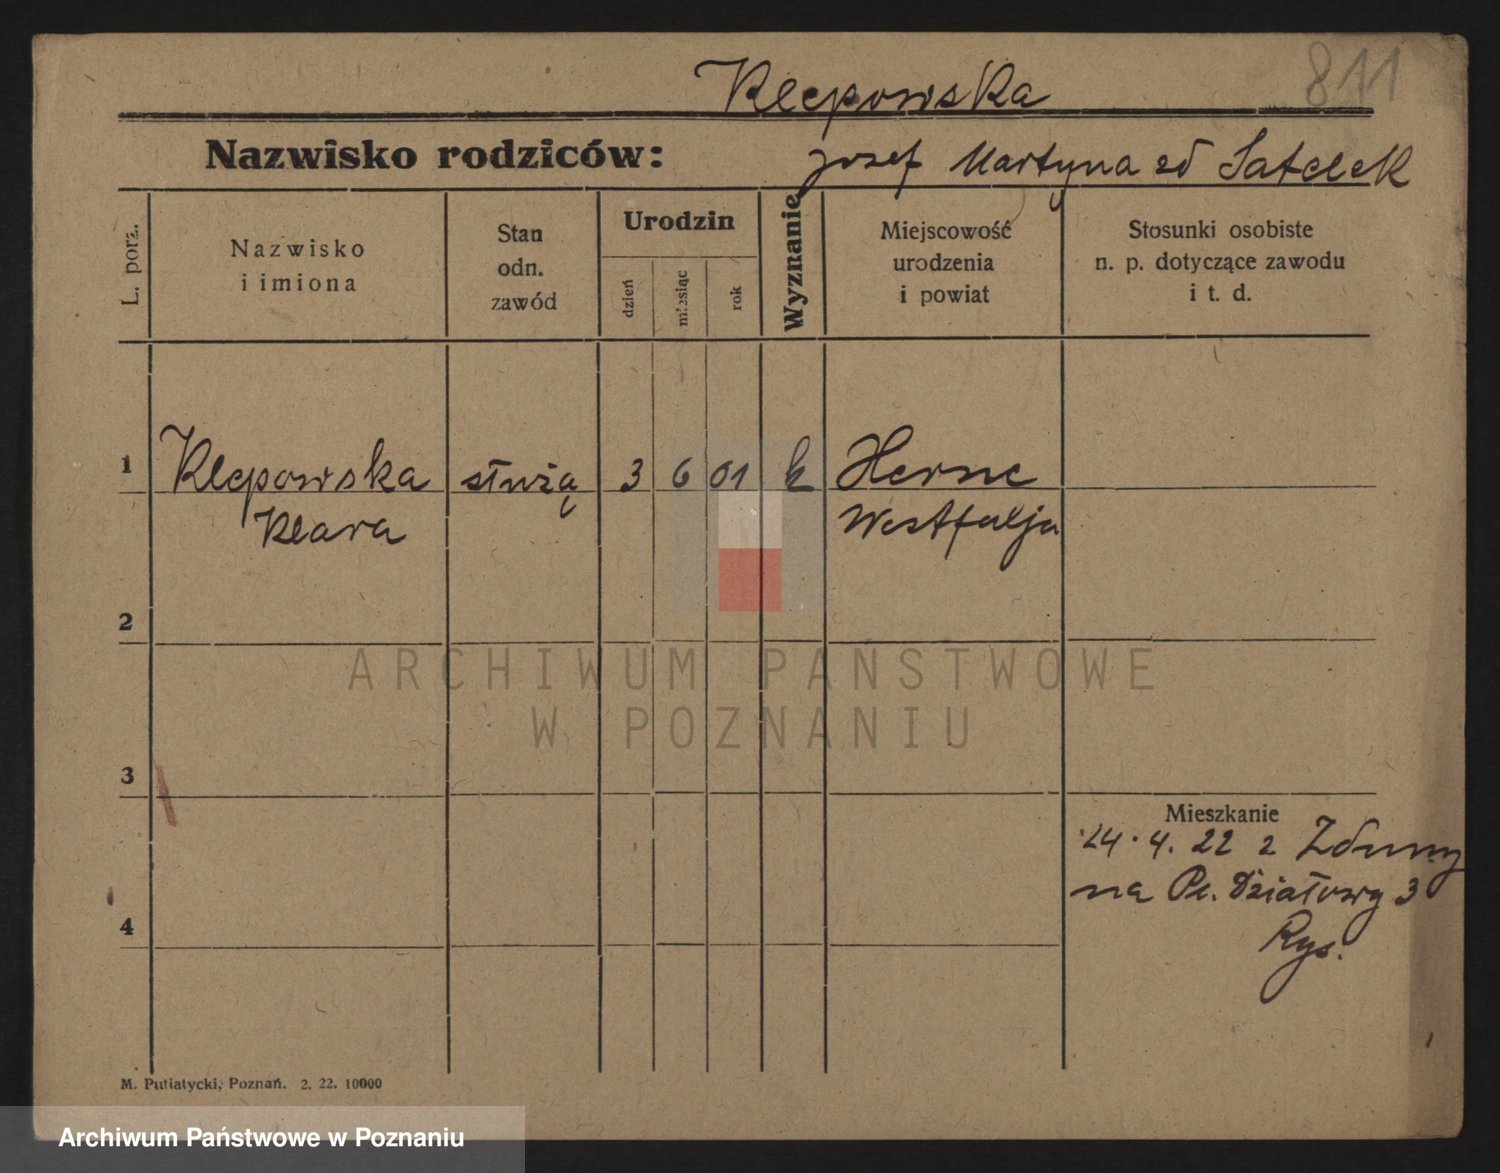 811
Klepowska
Nazwisko rodziców: Josef Martyna zd Satelek
L. porz.
Nazwisko
i imiona
Stan
odn.
zawód
Urodzin
dzień
miesiąc
rok
Wyznanie
Miejscowość
urodzenia
i powiat
Stosunki osobiste
n. p. dotyczące zawodu
i t. d.
1 Klepowska służą 3 6 01 k Herne
Klara Westfalja
2
3
Mieszkanie
24. 4. 22 z Zduny
na Pl. Działowy 3
4
Rys.
M. Putiatycki, Poznań. 2. 22. 10000
ARCHIWUM PAŃSTWOWE
W POZNANIU
Archiwum Państwowe w Poznaniu